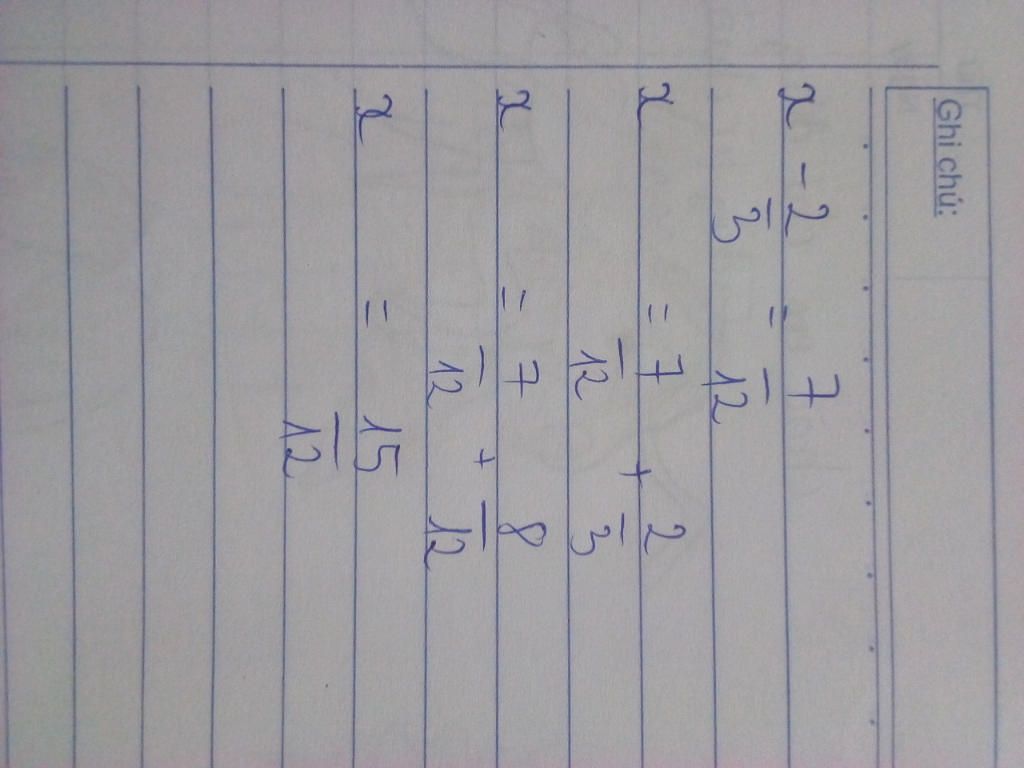 Ghi chú:
x - 2/3 = 7/12
x = 7/12 + 2/3
x = 7/12 + 8/12
x = 15/12